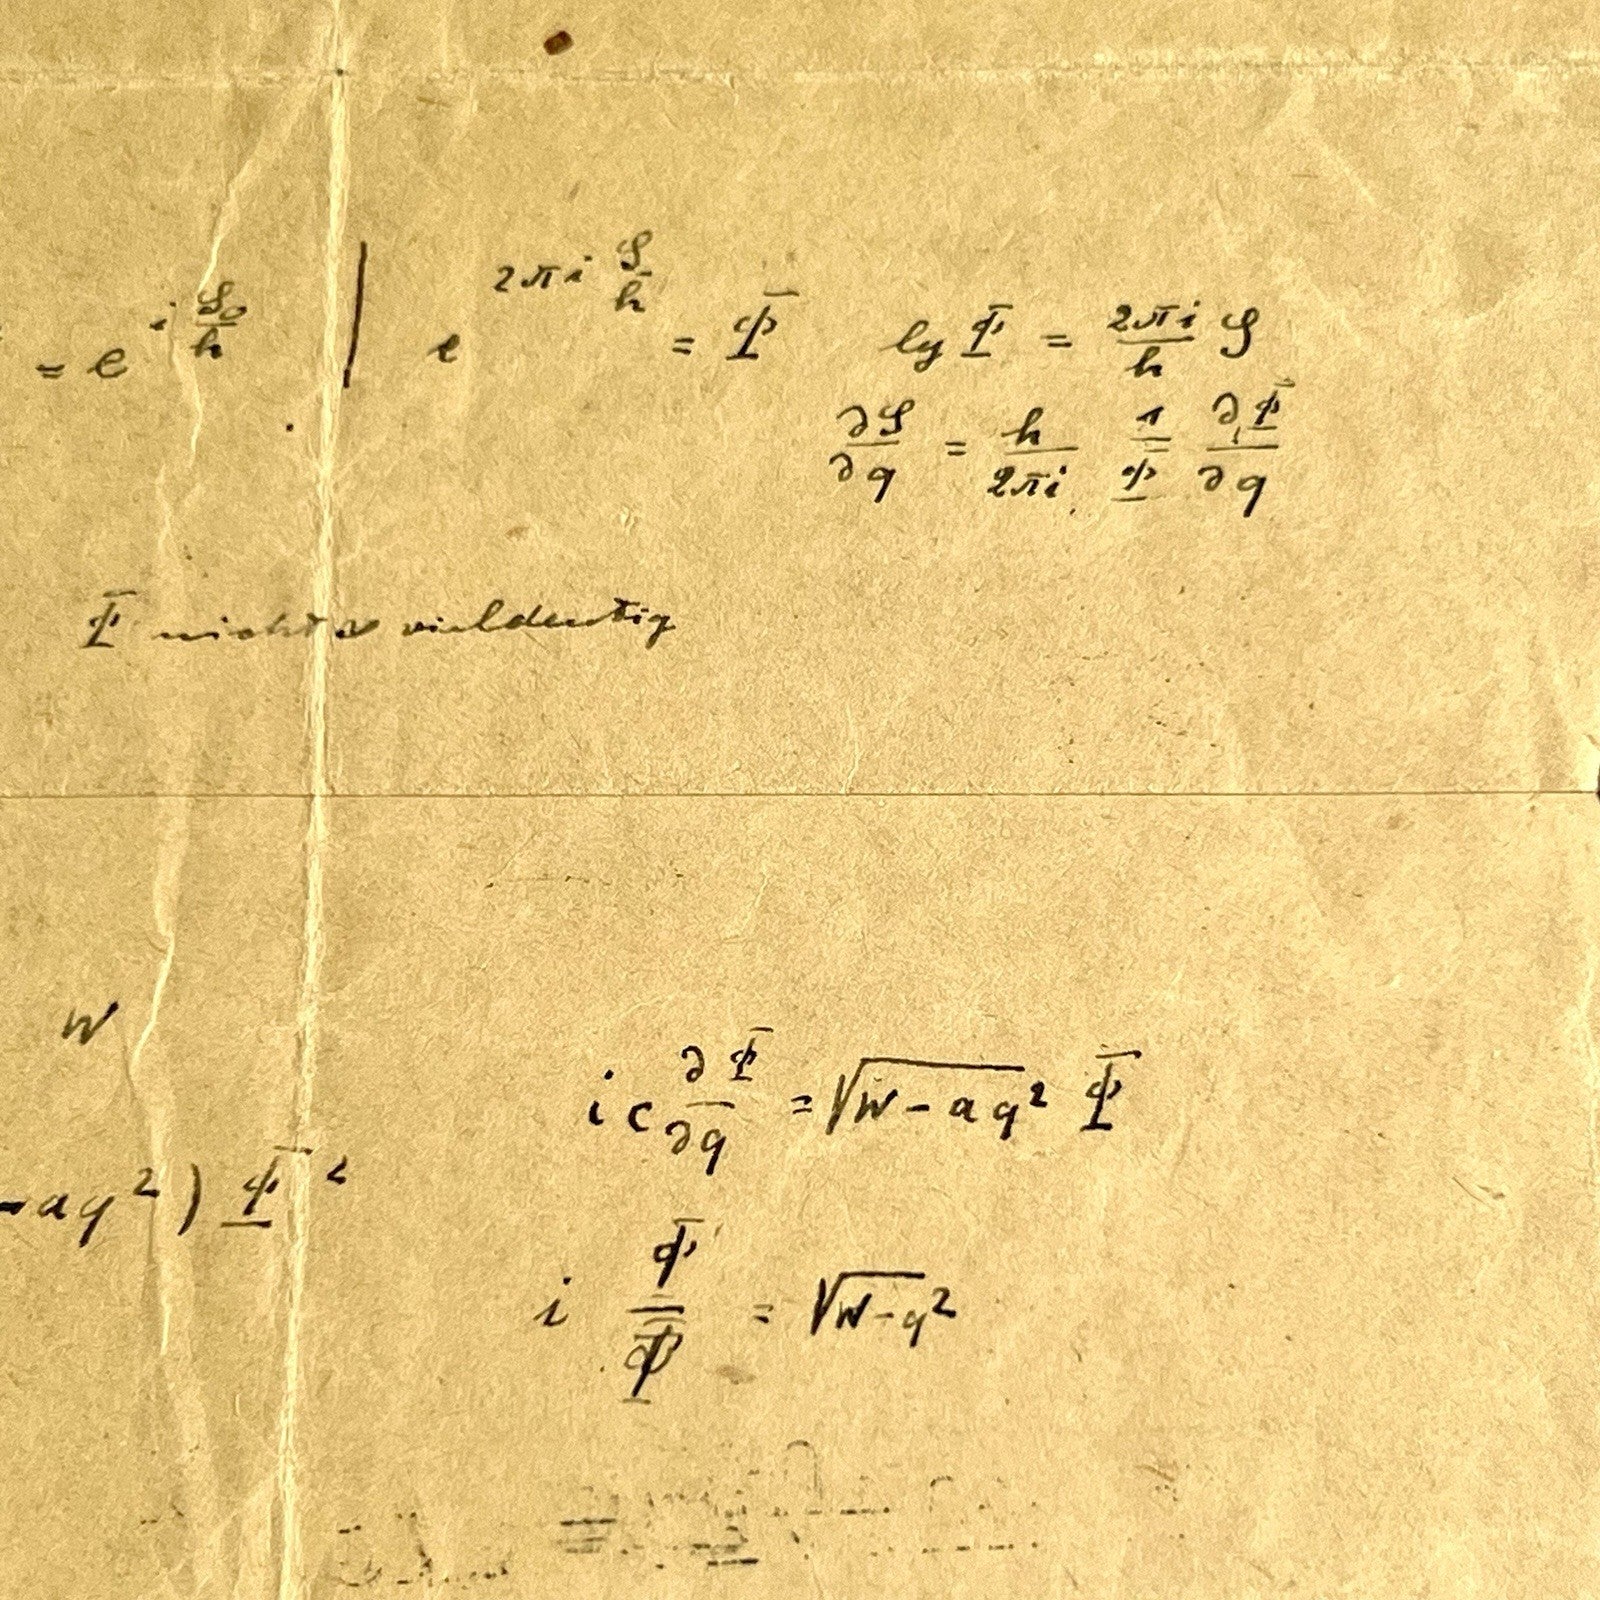 = e^{i S_0/h} | e^{2πi S/h} = Φ lg Φ = 2πi/h S
∂S/∂q = h/2πi 1/Φ ∂Φ/∂q
Φ nicht vieldeutig
W
i c ∂Φ/∂q = √(W - a q²) Φ
- a q² ) Φ²
i Φ'/Φ = √(W - q²)